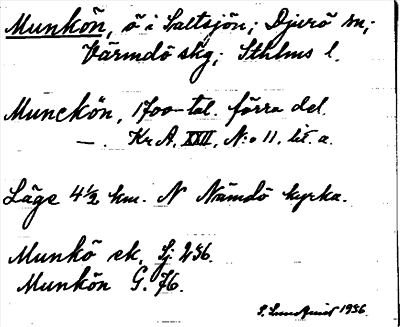 Munkön, ö i Saltsjön; Djurö sn;
Värmdö skg; Sthlms l.
Munckön, 1700-tal. förra del.
—. Kr A, XXII, N:o 11, lit. a.
Läge 4½ km. N Nämdö kyrka.
Munkö sk. Sj. 236.
Munkön G. 76.
S. Lundquist 1936.